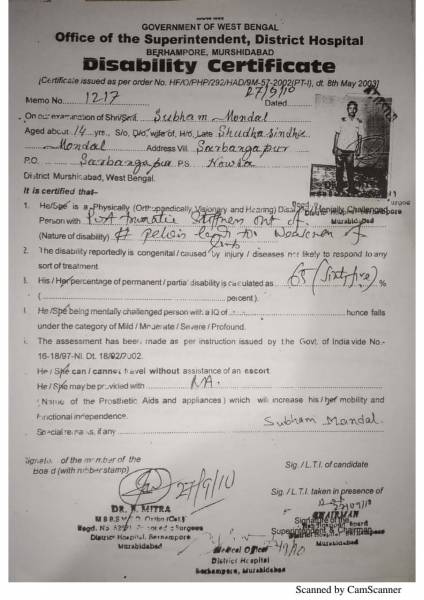 GOVERNMENT OF WEST BENGAL
Office of the Superintendent, District Hospital
BERHAMPORE, MURSHIDABAD
Disability Certificate
(Certificate issued as per order No. HF/O/PHP/292/HAD/9M-57-2002(PT-I), dt. 8th May 2003)
Memo No. 1217 Dated 27/9/10
On our examination of Shri/Smt. Subham Mondal
Aged about 14 yrs., S/o, D/o, wife of, H/o, Late Shudha sindhu
Mondal Address Vill. Sarbangapur
P.O. Sarbangapur P.S. Nowda
District Murshidabad, West Bengal.
It is certified that-
1. He/She is a Physically (Orthopedically, Visionary and Hearing) Disabled/Mentally Challenged
Person with Post traumatic stiffness of
(Nature of disability) pelvis of
2. The disability reportedly is congenital / caused by injury / diseases not likely to respond to any
sort of treatment.
His / Her percentage of permanent / partial disability is calculated as 65 (Sixty five) %
( percent).
He / She being mentally challenged person with a IQ of hunce falls
under the category of Mild / Moderate / Severe / Profound.
The assessment has been made as per instruction issued by the Govt. of India vide No.-
16-18/97-NI. Dt. 18/02/2002.
He / She can / cannot travel without assistance of an escort.
He / She may be provided with N.A.
(Name of the Prosthetic Aids and appliances) which will increase his / her mobility and
functional independence. Subham Mandal.
Special remarks, if any
Signature of the member of the
Board (with rubber stamp)
Sig. / L.T.I. of candidate
27/9/10
Sig. / L.T.I. taken in presence of
DR. MITRA
M B B S Ortho (Cal.)
Regd. No.
District Hospital, Berhampore
Murshidabad
Medical Officer
District Hospital
Berhampore, Murshidabad
CHAIRMAN
Signature of the
Superintendent & Chairman
District Hospital, Berhampore
Murshidabad
Scanned by CamScanner